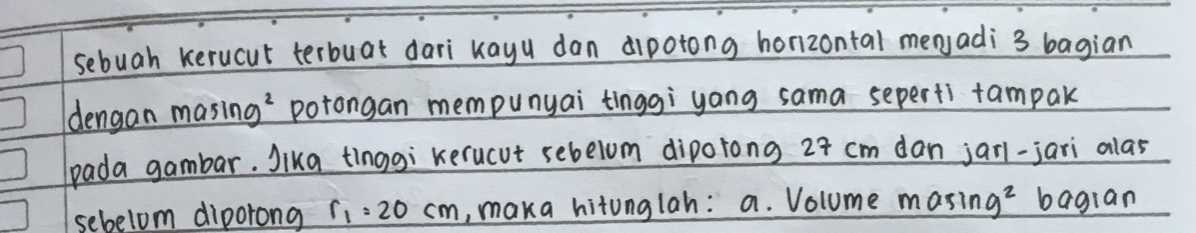 sebuah kerucut terbuat dari kayu dan dipotong horizontal menjadi 3 bagian
dengan masing² potongan mempunyai tinggi yang sama seperti tampak
pada gambar. Jika tinggi kerucut sebelum dipotong 27 cm dan jari-jari alas
sebelum dipotong r₁ = 20 cm, maka hitunglah: a. Volume masing² bagian